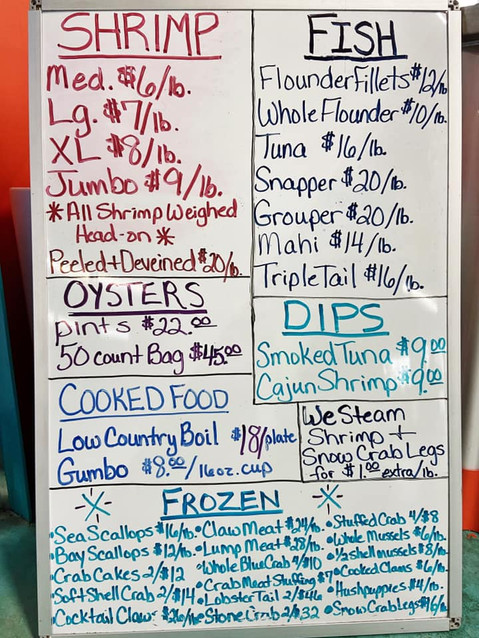 SHRIMP
Med. $6/lb.
Lg. $7/lb.
XL $8/lb.
Jumbo $9/lb.
*All Shrimp Weighed
Head-on*
Peeled+Deveined $20/lb.
OYSTERS
pints $22.00
50 count Bag $45.00
COOKED FOOD
Low Country Boil $18/plate
Gumbo $8.00/16oz. cup
FISH
Flounder Fillets $12/lb
Whole Flounder $10/lb.
Tuna $16/lb.
Snapper $20/lb.
Grouper $20/lb.
Mahi $14/lb.
Triple Tail $16/lb.
DIPS
Smoked Tuna $9.00
Cajun Shrimp $9.00
We Steam
Shrimp +
Snow Crab Legs
for $1.00 extra/lb.
FROZEN
•Sea Scallops $16/lb.
•Bay Scallops $12/lb.
•Crab Cakes 2/$12
•Soft Shell Crab 2/$14
•Cocktail Claw
•Claw Meat $24/lb.
•Lump Meat $28/lb.
•Whole Blue Crab 4/$10
•Crab Meat Stuffing $7
•Lobster Tail 2/$46
•Stone Crab 2/$32
•Stuffed Crab 4/$8
•Whole Mussels $6/lb.
•½ shell mussels $8/lb.
•Cooked Clams $6/lb.
•Hushpuppies $4/lb.
•Snow Crab Legs $16/lb